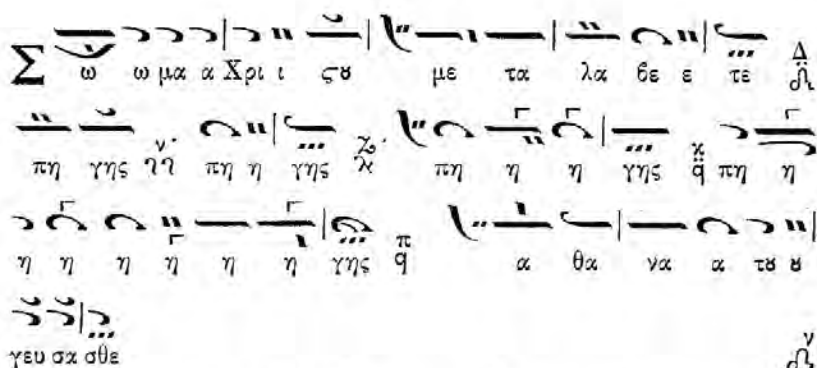 Σ ω ω μα α Χρι ι ςȣ με τα λα βε ε τε Δ
πη γης ν πη η γης Ζ πη η η γης κ πη η
η η η η η η γης π q α θα να α τȣ ȣ
γευ σα σθε ν